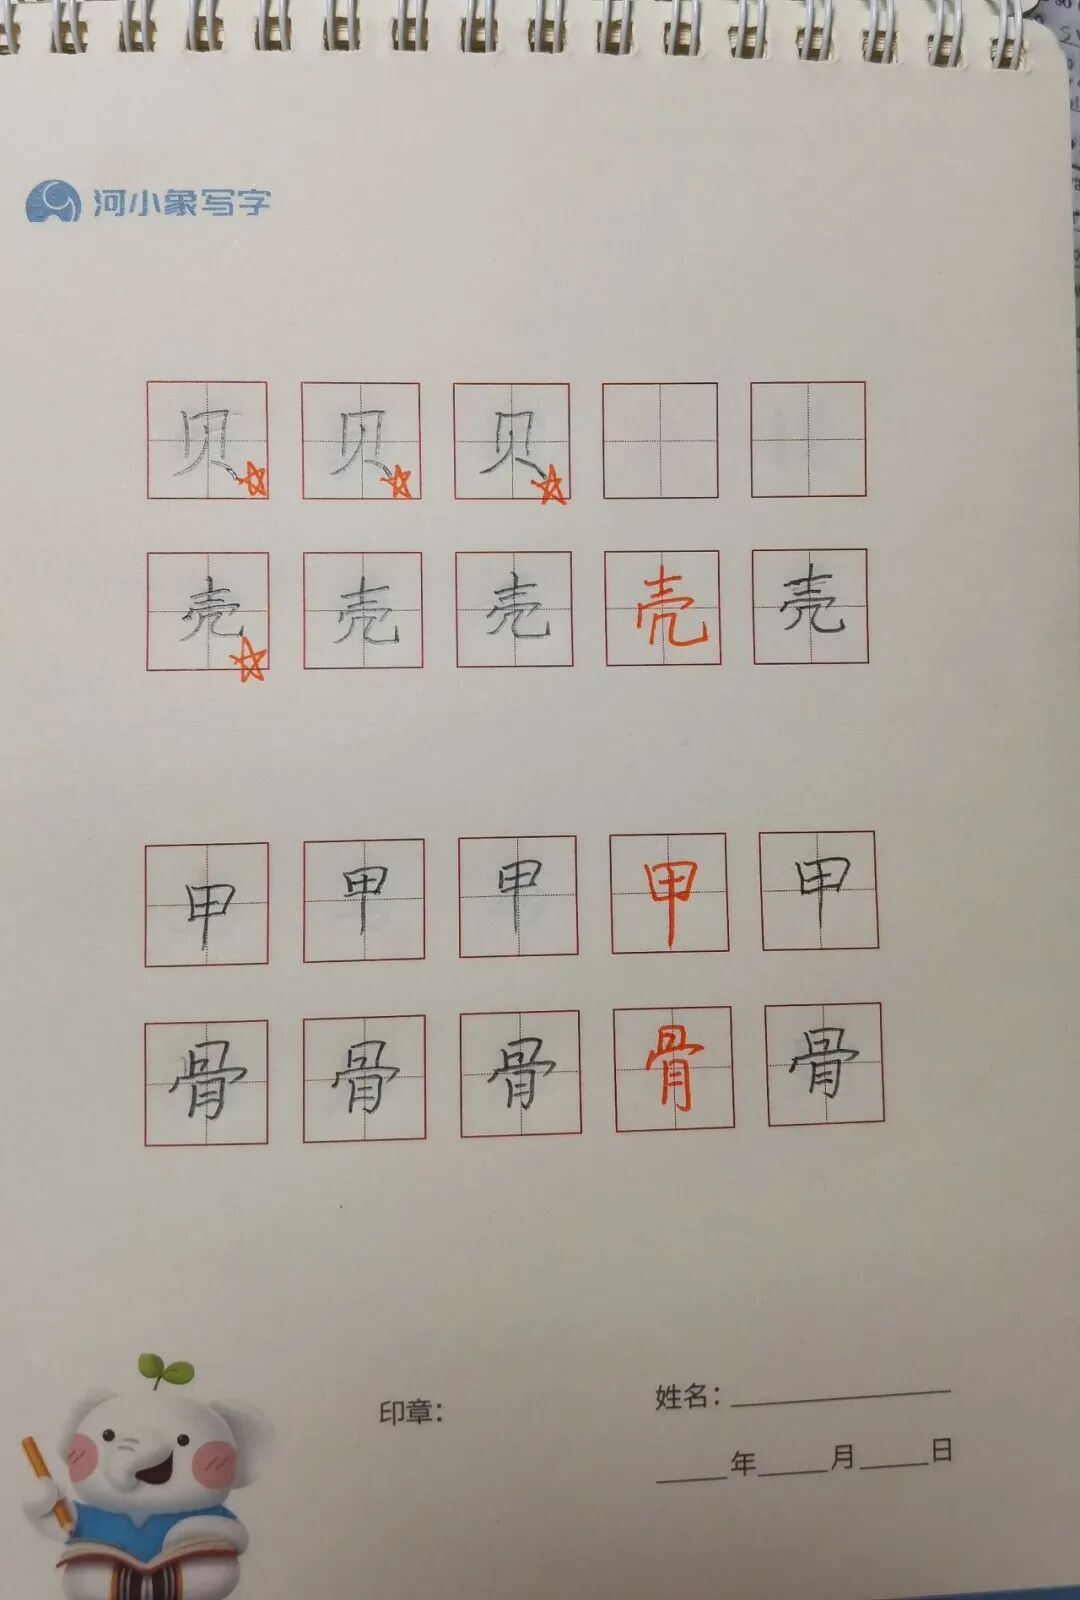 河小象写字
贝 贝 贝
壳 壳 壳 壳 壳
甲 甲 甲 甲 甲
骨 骨 骨 骨 骨
印章：
姓名：
年 月 日